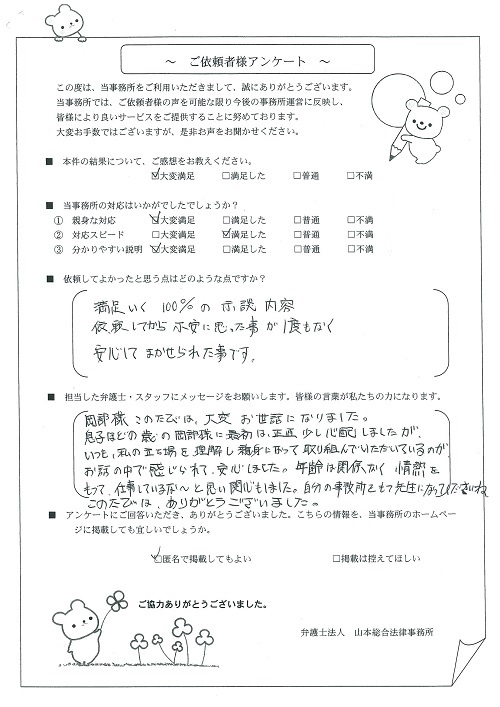 ～ ご依頼者様アンケート ～
この度は、当事務所をご利用いただきまして、誠にありがとうございます。
当事務所では、ご依頼者様の声を可能な限り今後の事務所運営に反映し、
皆様により良いサービスをご提供することに努めております。
大変お手数ではございますが、是非お声をお聞かせください。
■ 本件の結果について、ご感想をお教えください。
☑大変満足 □満足した □普通 □不満
■ 当事務所の対応はいかがでしたでしょうか？
① 親身な対応 ☑大変満足 □満足した □普通 □不満
② 対応スピード □大変満足 ☑満足した □普通 □不満
③ 分かりやすい説明 ☑大変満足 □満足した □普通 □不満
■ 依頼してよかったと思う点はどのような点ですか？
満足いく 100%の 示談 内容
依頼してから 不安に思った事が 1度もなく
安心して まかせられた事です。
■ 担当した弁護士・スタッフにメッセージをお願いします。皆様の言葉が私たちの力になります。
岡部様 このたびは、大変 お世話になりました。
息子ほどの歳の岡部様に最初は、正直 少し心配しましたが、
いつも、私の立ち場を理解し 親身になって 取り組んでいただいているのが
お話の中で感じられて、安心しました。年齢は関係なく 情熱を
もって、仕事しているな〜と思い 関心もしました。自分の事務所をもつ先生になってくださいね
このたびは、ありがとうございました。
■ アンケートにご回答いただき、ありがとうございました。こちらの情報を、当事務所のホームペー
ジに掲載しても宜しいでしょうか。
☑匿名で掲載してもよい □掲載は控えてほしい
ご協力ありがとうございました。
弁護士法人 山本総合法律事務所